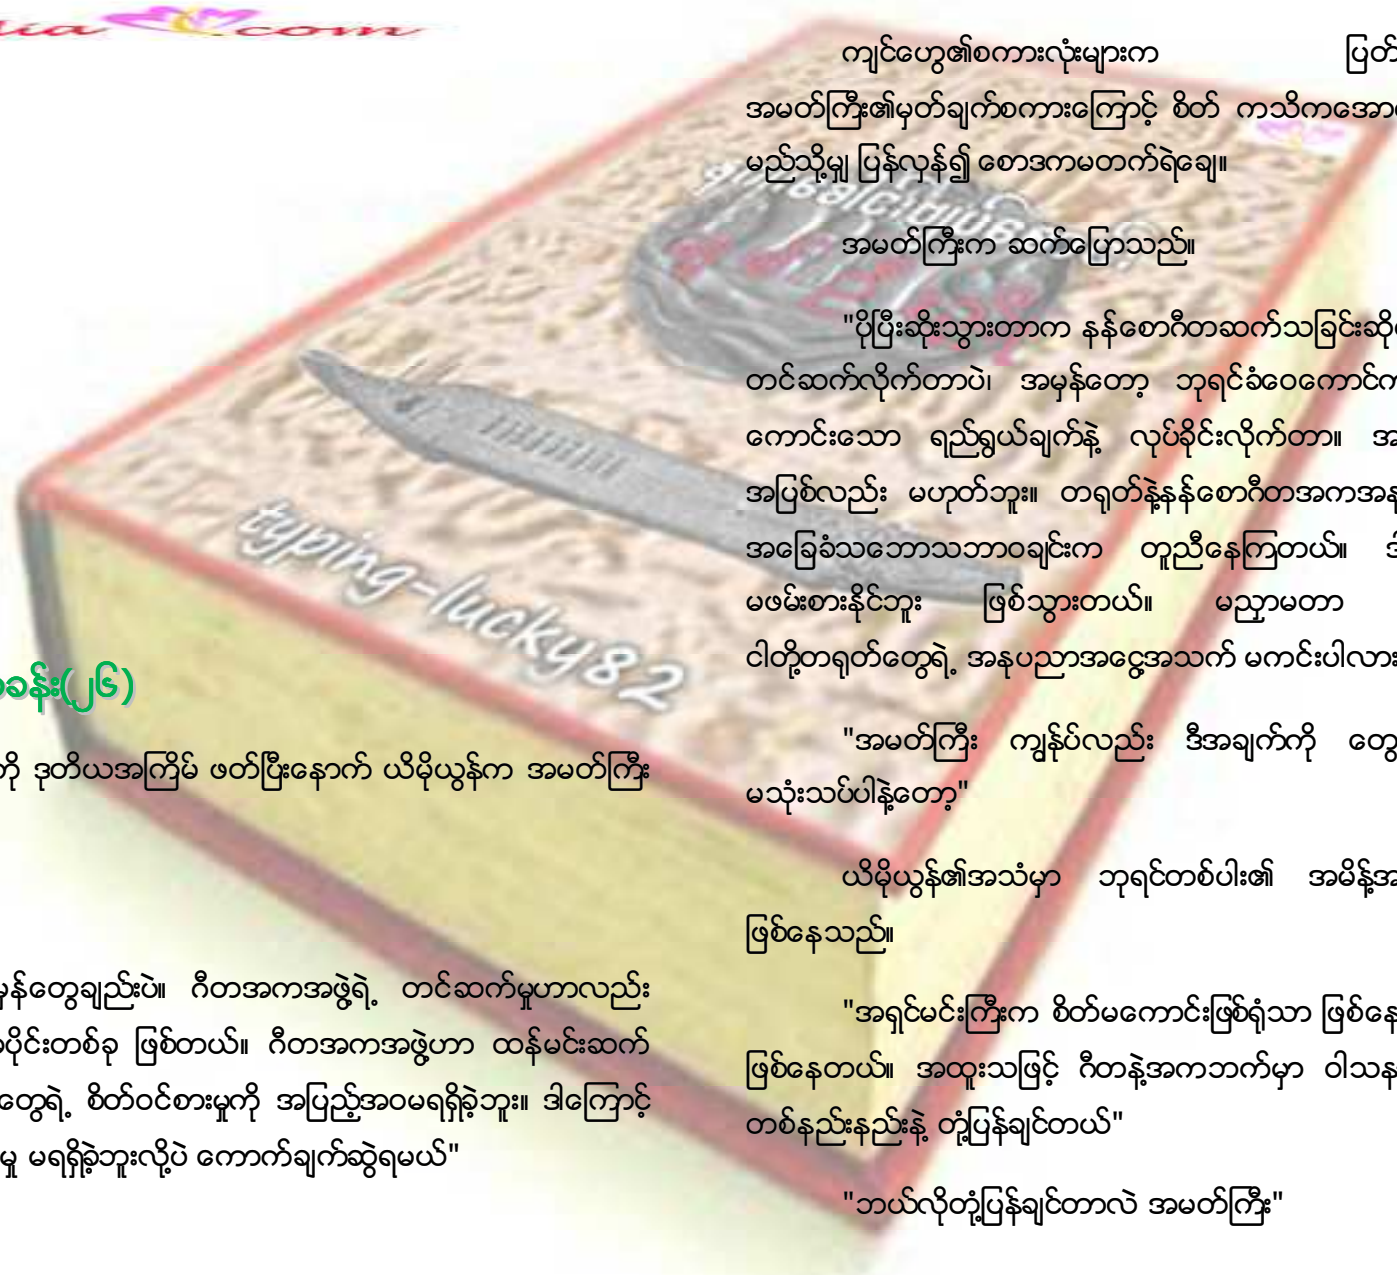 com
ခန်း(၂၆)
ကို ဒုတိယအကြိမ် ဖတ်ပြီးနောက် ယိမိုယွန်က အမတ်ကြီး
မှန်တွေချည်းပဲ။ ဂီတအကအဖွဲ့ရဲ့ တင်ဆက်မှုဟာလည်း
ပိုင်းတစ်ခု ဖြစ်တယ်။ ဂီတအကအဖွဲ့ဟာ ထန်မင်းဆက်
တွေရဲ့ စိတ်ဝင်စားမှုကို အပြည့်အဝမရရှိခဲ့ဘူး။ ဒါကြောင့်
မှု မရရှိခဲ့ဘူးလို့ပဲ ကောက်ချက်ဆွဲရမယ်"
ကျင်ဟွေ၏စကားလုံးများက ပြတ်
အမတ်ကြီး၏မှတ်ချက်စကားကြောင့် စိတ် ကသိကအော
မည်သို့မျှ ပြန်လှန်၍ စောဒကမတက်ရဲချေ။
အမတ်ကြီးက ဆက်ပြောသည်။
"ပိုပြီးဆိုးသွားတာက နန်စောဂီတဆက်သခြင်းဆို
တင်ဆက်လိုက်တာပဲ၊ အမှန်တော့ ဘုရင်ခံဝေကောင်က
ကောင်းသော ရည်ရွယ်ချက်နဲ့ လုပ်ခိုင်းလိုက်တာ။ အ
အပြစ်လည်း မဟုတ်ဘူး။ တရုတ်နဲ့နန်စောဂီတအကအန
အခြေခံသဘောသဘာဝချင်းက တူညီနေကြတယ်။ ဒ
မဖမ်းစားနိုင်ဘူး ဖြစ်သွားတယ်။ မညှာမတာ
ငါတို့တရုတ်တွေရဲ့ အနုပညာအငွေ့အသက် မကင်းပါလား
"အမတ်ကြီး ကျွန်ုပ်လည်း ဒီအချက်ကို တွေ
မသုံးသပ်ပါနဲ့တော့"
ယိမိုယွန်၏အသံမှာ ဘုရင်တစ်ပါး၏ အမိန့်အ
ဖြစ်နေသည်။
"အရှင်မင်းကြီးက စိတ်မကောင်းဖြစ်ရုံသာ ဖြစ်နေ
ဖြစ်နေတယ်။ အထူးသဖြင့် ဂီတနဲ့အကဘက်မှာ ဝါသန
တစ်နည်းနည်းနဲ့ တုံ့ပြန်ချင်တယ်"
"ဘယ်လိုတုံ့ပြန်ချင်တာလဲ အမတ်ကြီး"
typing-lucky82